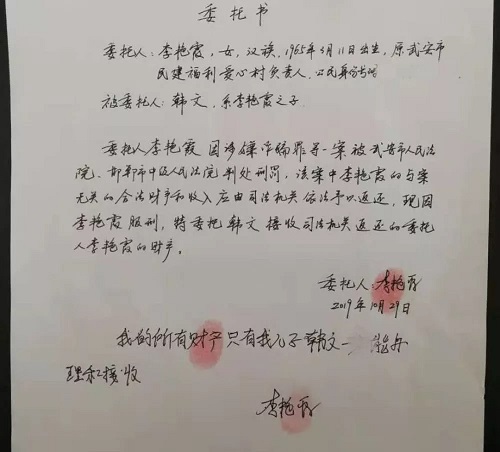 委托书
委托人：李艳霞，女，汉族，1965年3月11日出生，原武安市
民建福利爱心村负责人，公民身份号码
被委托人：韩文，系李艳霞之子
委托人李艳霞因涉嫌诈骗罪等一案被武安市人民法
院、邯郸市中级人民法院判处刑罚，该案中李艳霞的与案
无关的合法财产和收入应由司法机关依法予以返还，现因
李艳霞服刑，特委托韩文接收司法机关返还的委托
人李艳霞的财产。
委托人：李艳霞
2019年10月29日
我的所有财产只有我儿子韩文一
理和接收
李艳霞